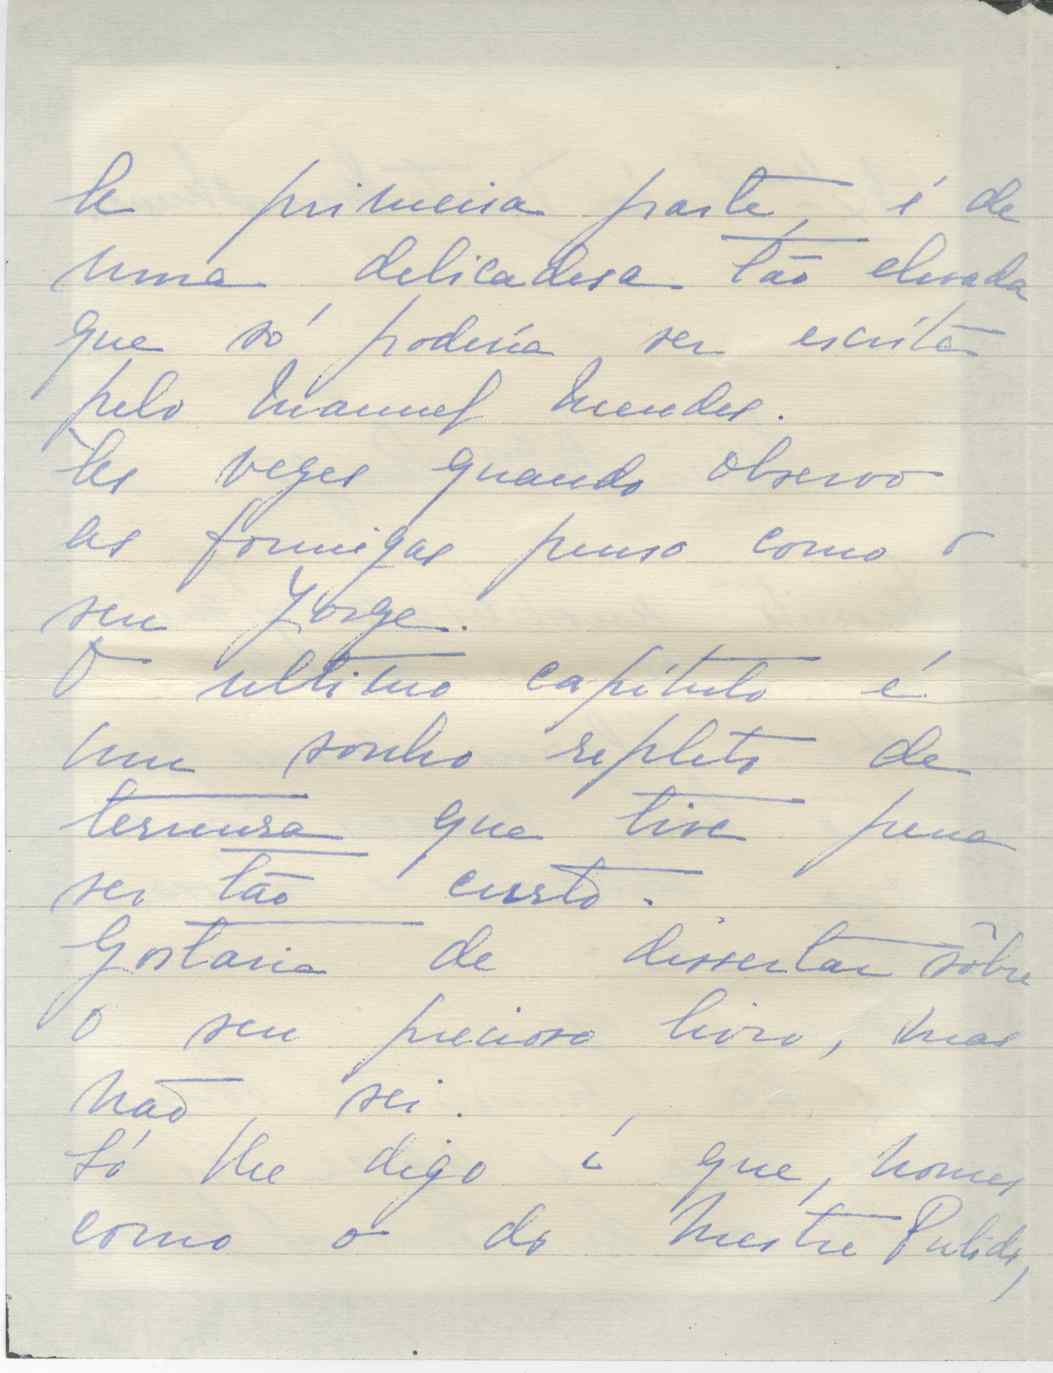 A primeira parte, é de
uma delicadesa tão elevada
que só poderia ser escrita
pelo Manuel Mendes.
Às vezes quando observo
as formigas penso como o
seu Jorge.
O ultimo capítulo é
um sonho repleto de
ternura que tive pena
ser tão curto.
Gostaria de dissertar sôbre
o seu precioso livro, mas
não sei.
Só lhe digo é que, nomes
como o do Mestre Pulido,